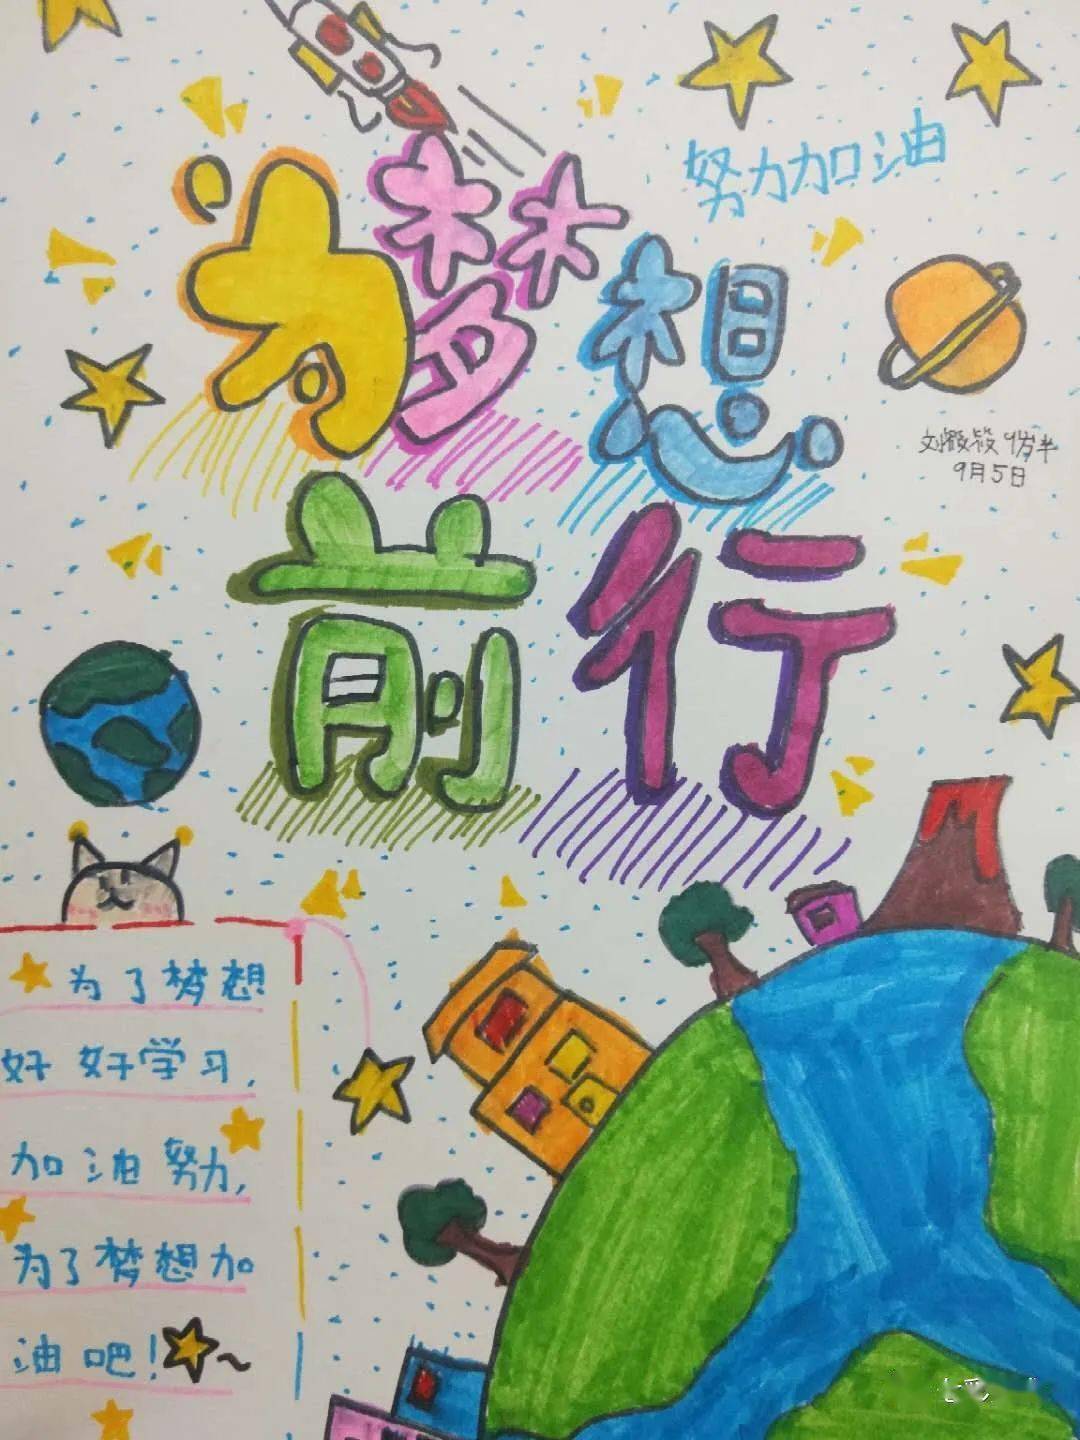 努力加油
为梦想
前行
9岁半
9月5日
为了梦想
好好学习,
加油努力,
为了梦想加
油吧!~